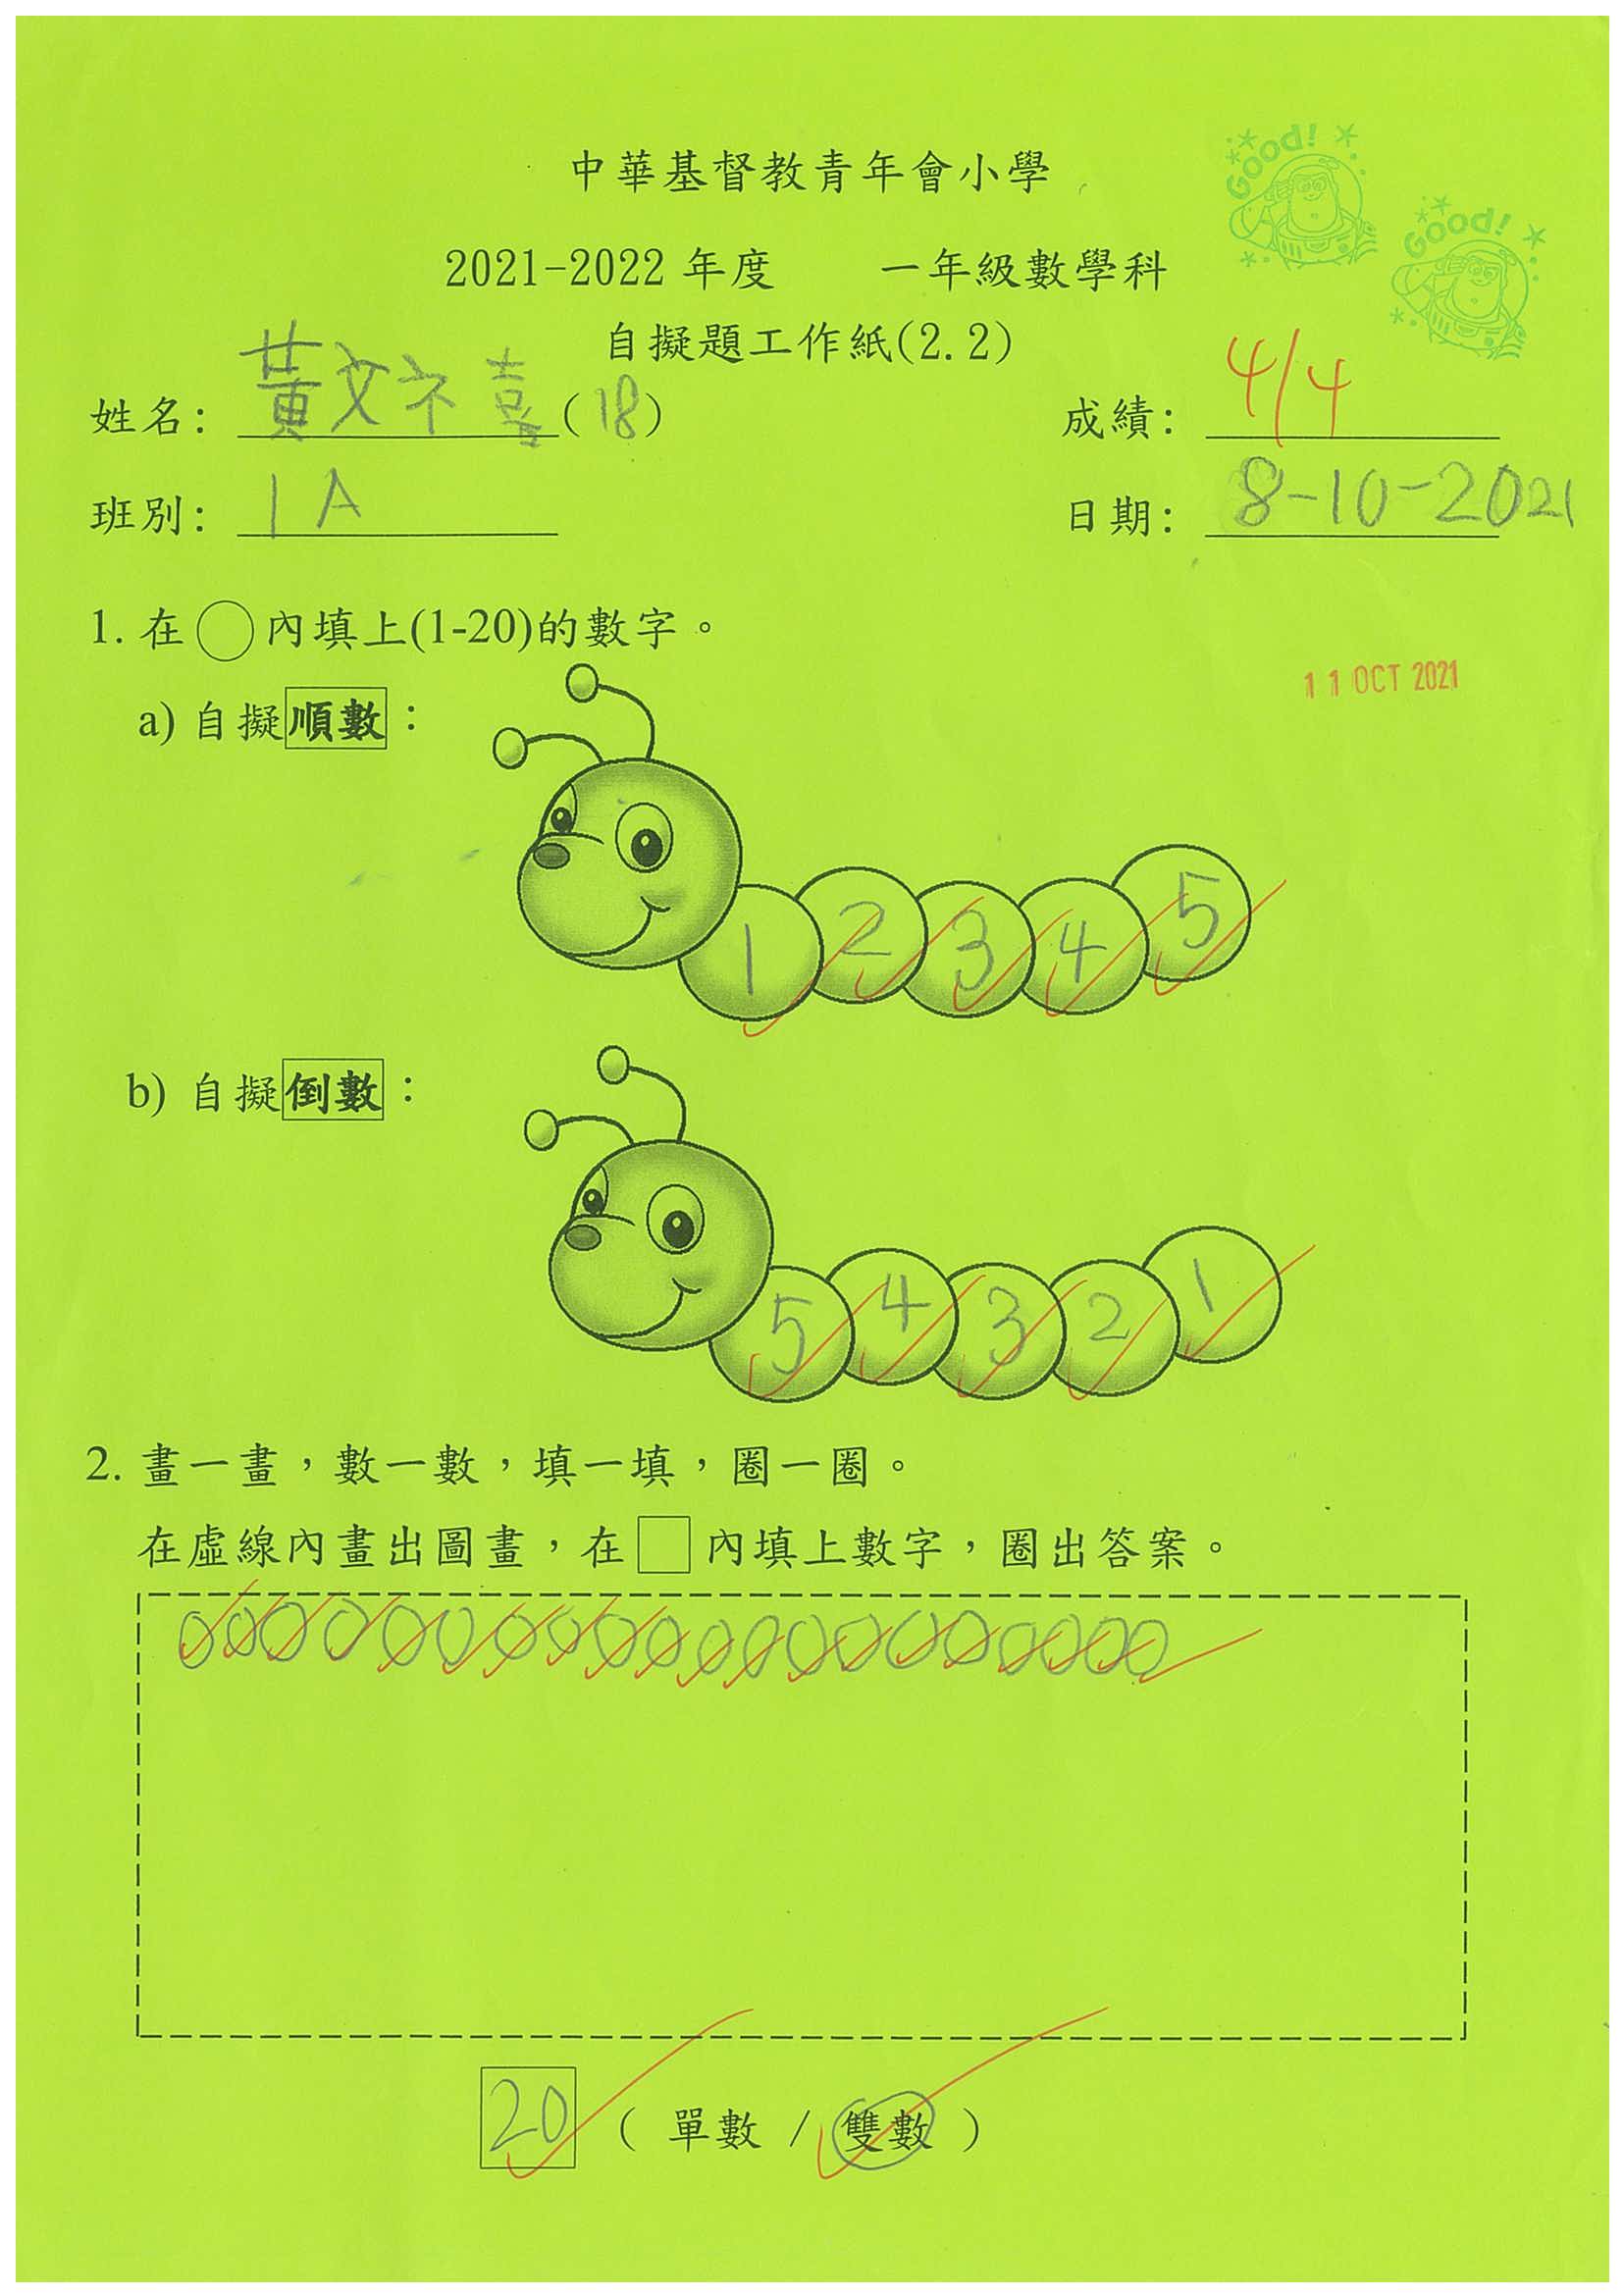 中華基督教青年會小學
Good!
Good!
2021-2022 年度 一年級數學科
自擬題工作紙(2.2)
姓名: 黃文禧 (18) 成績: 4/4
班別: 1A 日期: 8-10-2021
1. 在○內填上(1-20)的數字。
11 OCT 2021
a) 自擬順數：
1 2 3 4 5
b) 自擬倒數：
5 4 3 2 1
2. 畫一畫，數一數，填一填，圈一圈。
在虛線內畫出圖畫，在□內填上數字，圈出答案。
20 ( 單數 / 雙數 )